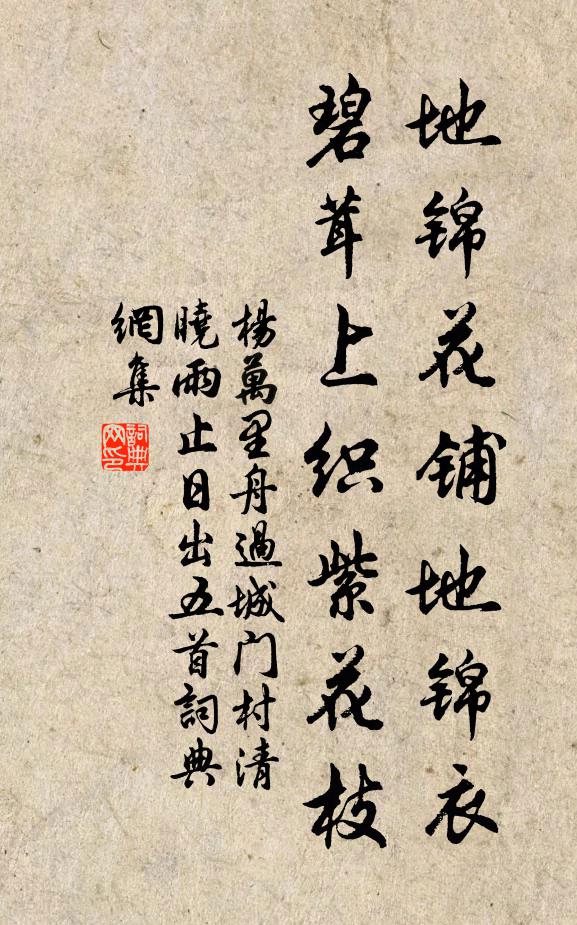 地锦花铺地锦衣
碧茸上织紫花枝
楊萬里舟過城门村清
曉雨止日出五首詞典
網集
詞典
网印